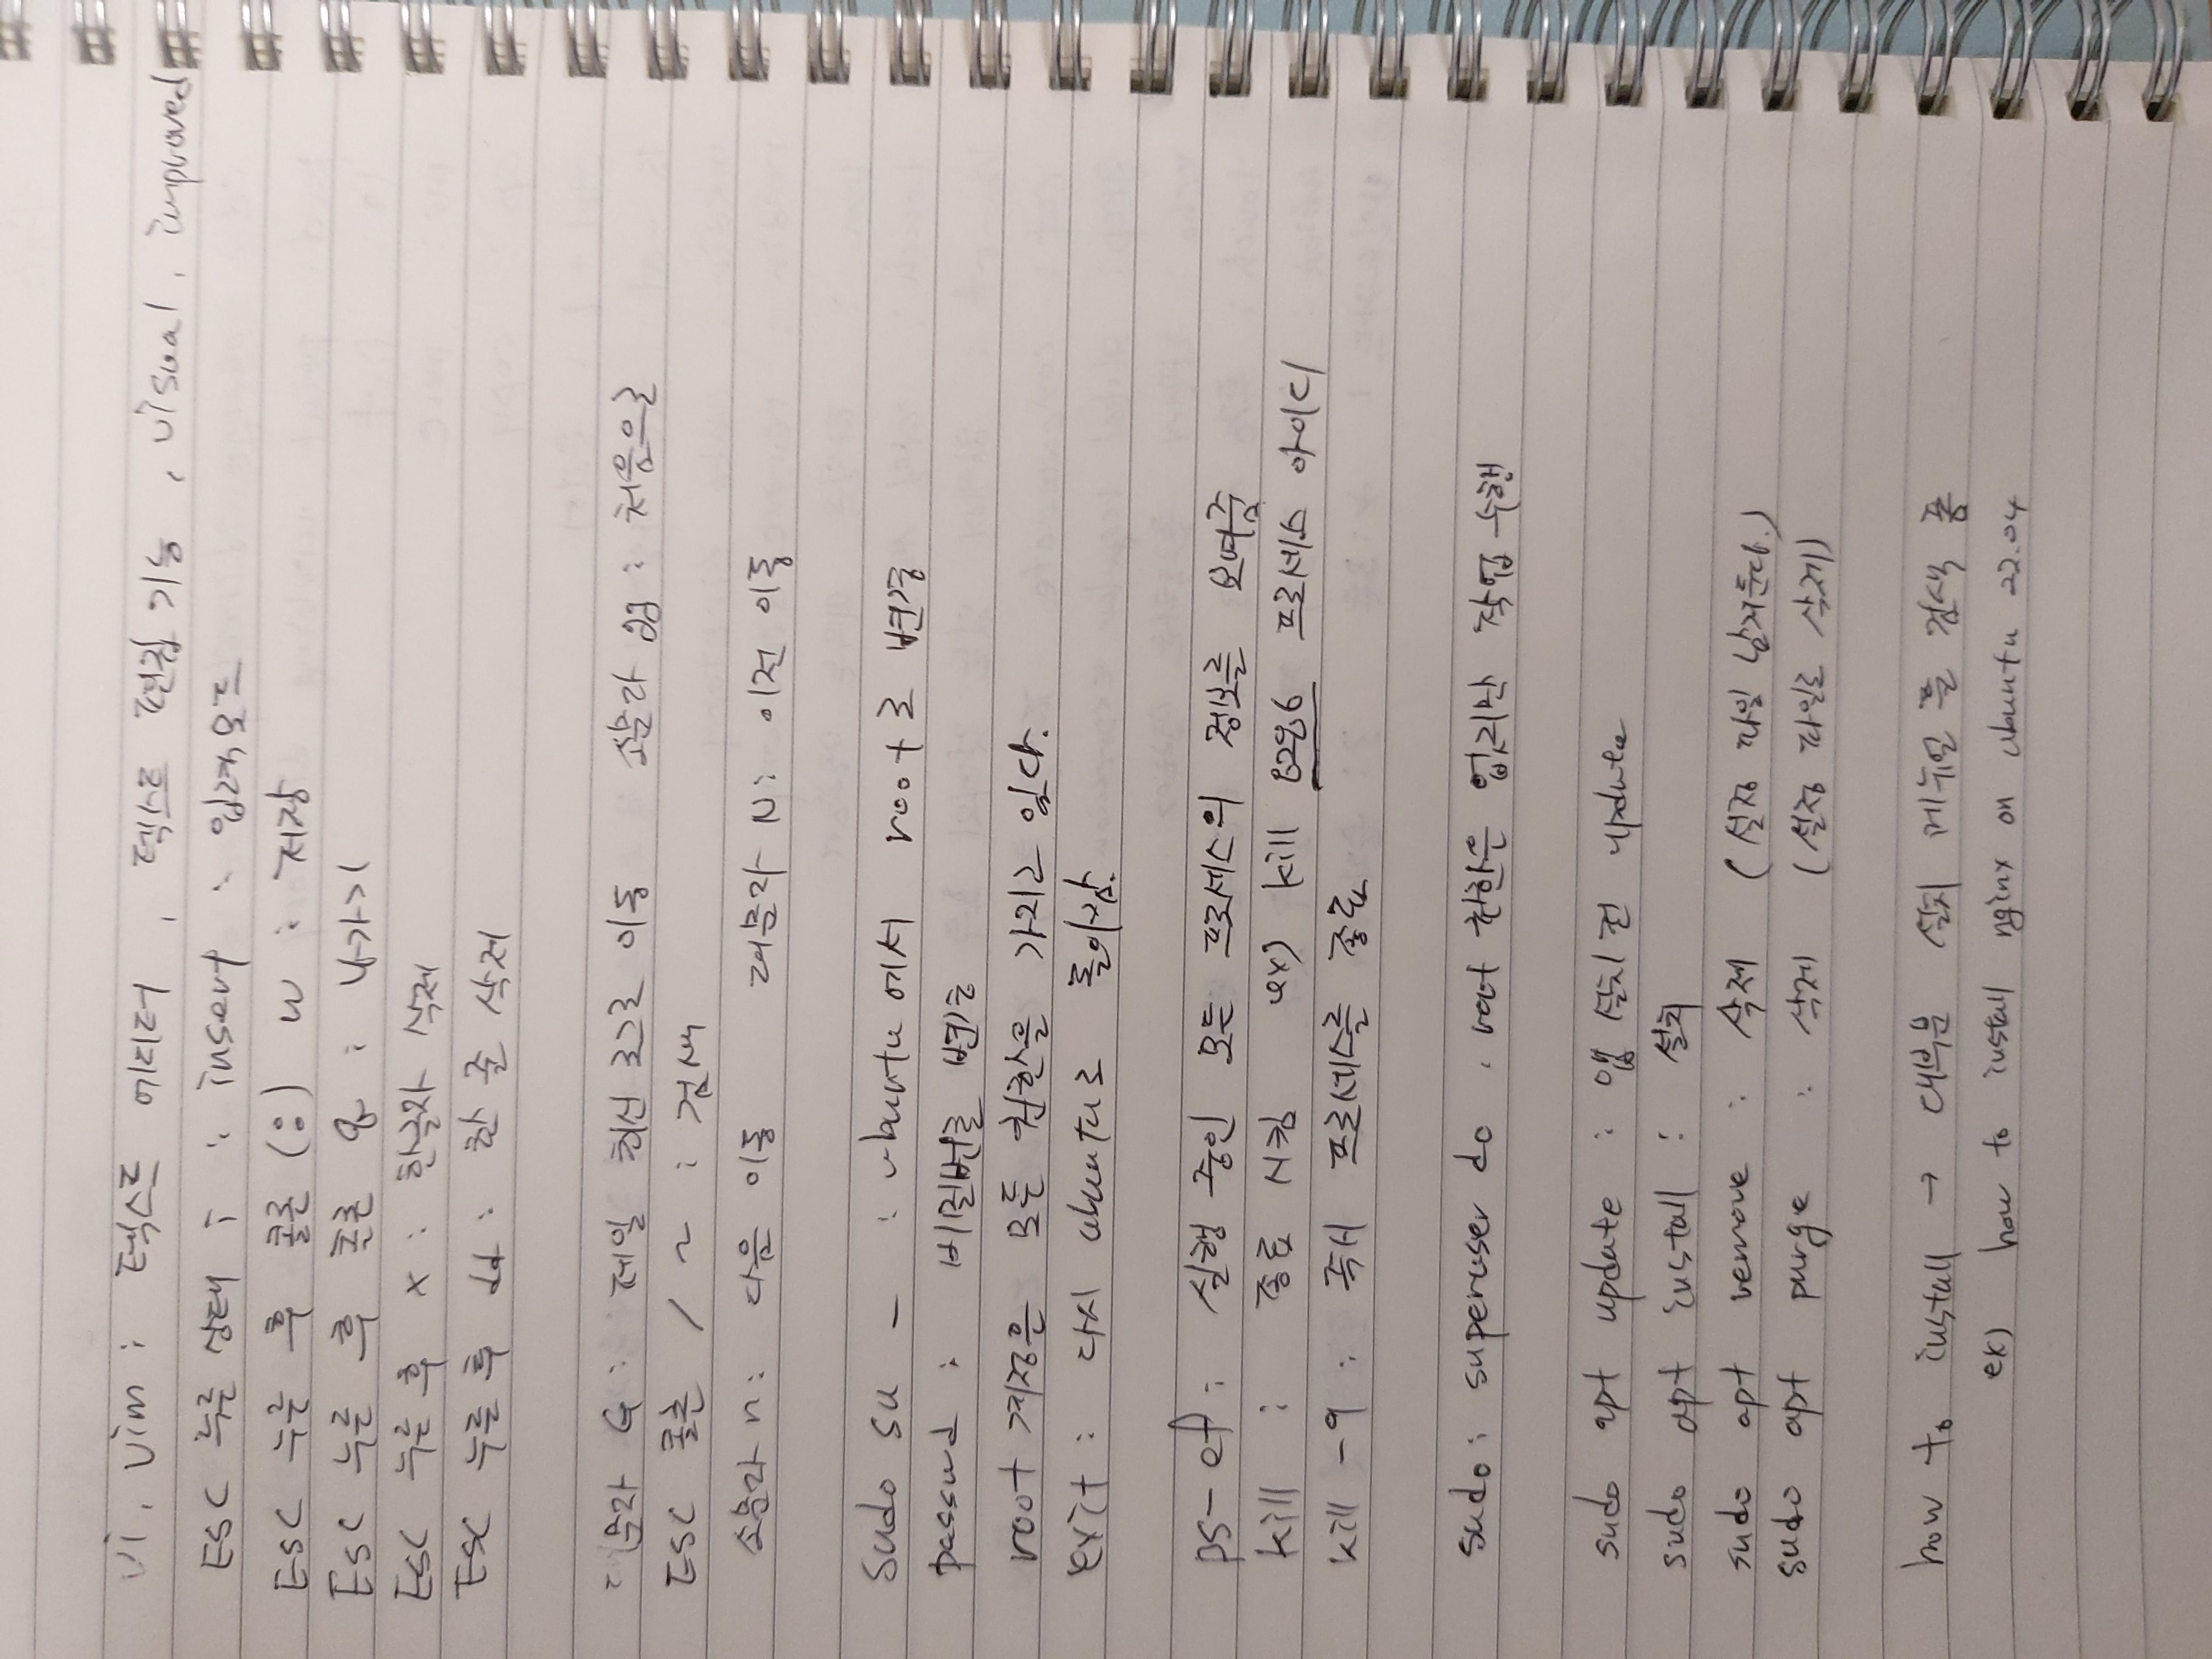 vi, vim : 텍스트 에디터, 텍스트 편집 기능, visual, improved
ESC 누른 상태 i : insert : 입력모드
ESC 누른 후 콜론 (:) w : 저장
ESC 누른 후 콜론 q : 나가기
ESC 누른 후 x : 한글자 삭제
ESC 누른 후 dd : 한 줄 삭제
대문자 G : 제일 최신 로그로 이동 소문자 gg : 처음으로
ESC 콜론 / ~ : 검색
소문자 n : 다음 이동 대문자 N : 이전 이동
sudo su - : ubuntu에서 root로 변경
passwd : 비밀번호 변경
root 계정은 모든 권한을 가지고 있다.
exit : 다시 ubuntu로 돌아감.
ps -ef : 실행 중인 모든 프로세스의 정보를 보여줌
kill : 종료 시킴 ex) kill 프로세스 아이디
kill -9 : 즉시 프로세스를 종료
sudo : superuser do . root 권한은 없지만 작업 수행
sudo apt update : 앱 설치 전 update
sudo apt install : 설치
sudo apt remove : 삭제 (설정 파일 남겨둔다.)
sudo apt purge : 삭제 (설정 파일도 삭제)
how to install → 대부분 설치 메뉴얼 을 검색 중
ex) how to install nginx on ubuntu 22.04